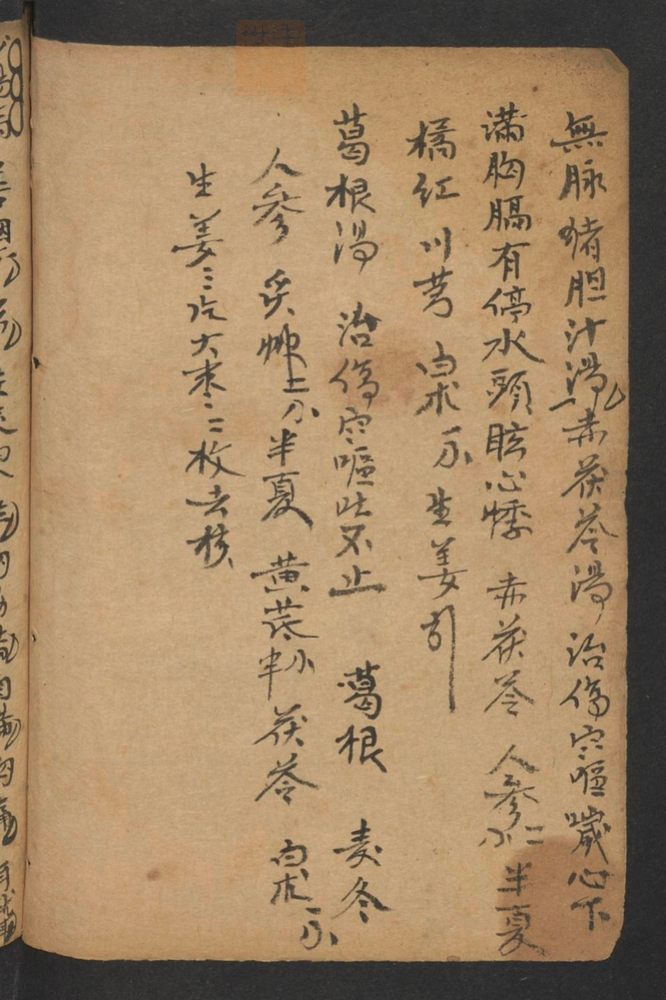 無脉猪胆汁湯 赤茯苓湯 治傷寒嘔噦心下
满胸膈有停水頭眩心悸 赤茯苓 人參 二 半夏
橘紅 川芎 白朮 生姜引
葛根湯 治傷寒嘔吐不止 葛根 麦冬
人參 炙 半夏 黄芪 半 茯苓 白朮
生姜三片大枣二枚去核